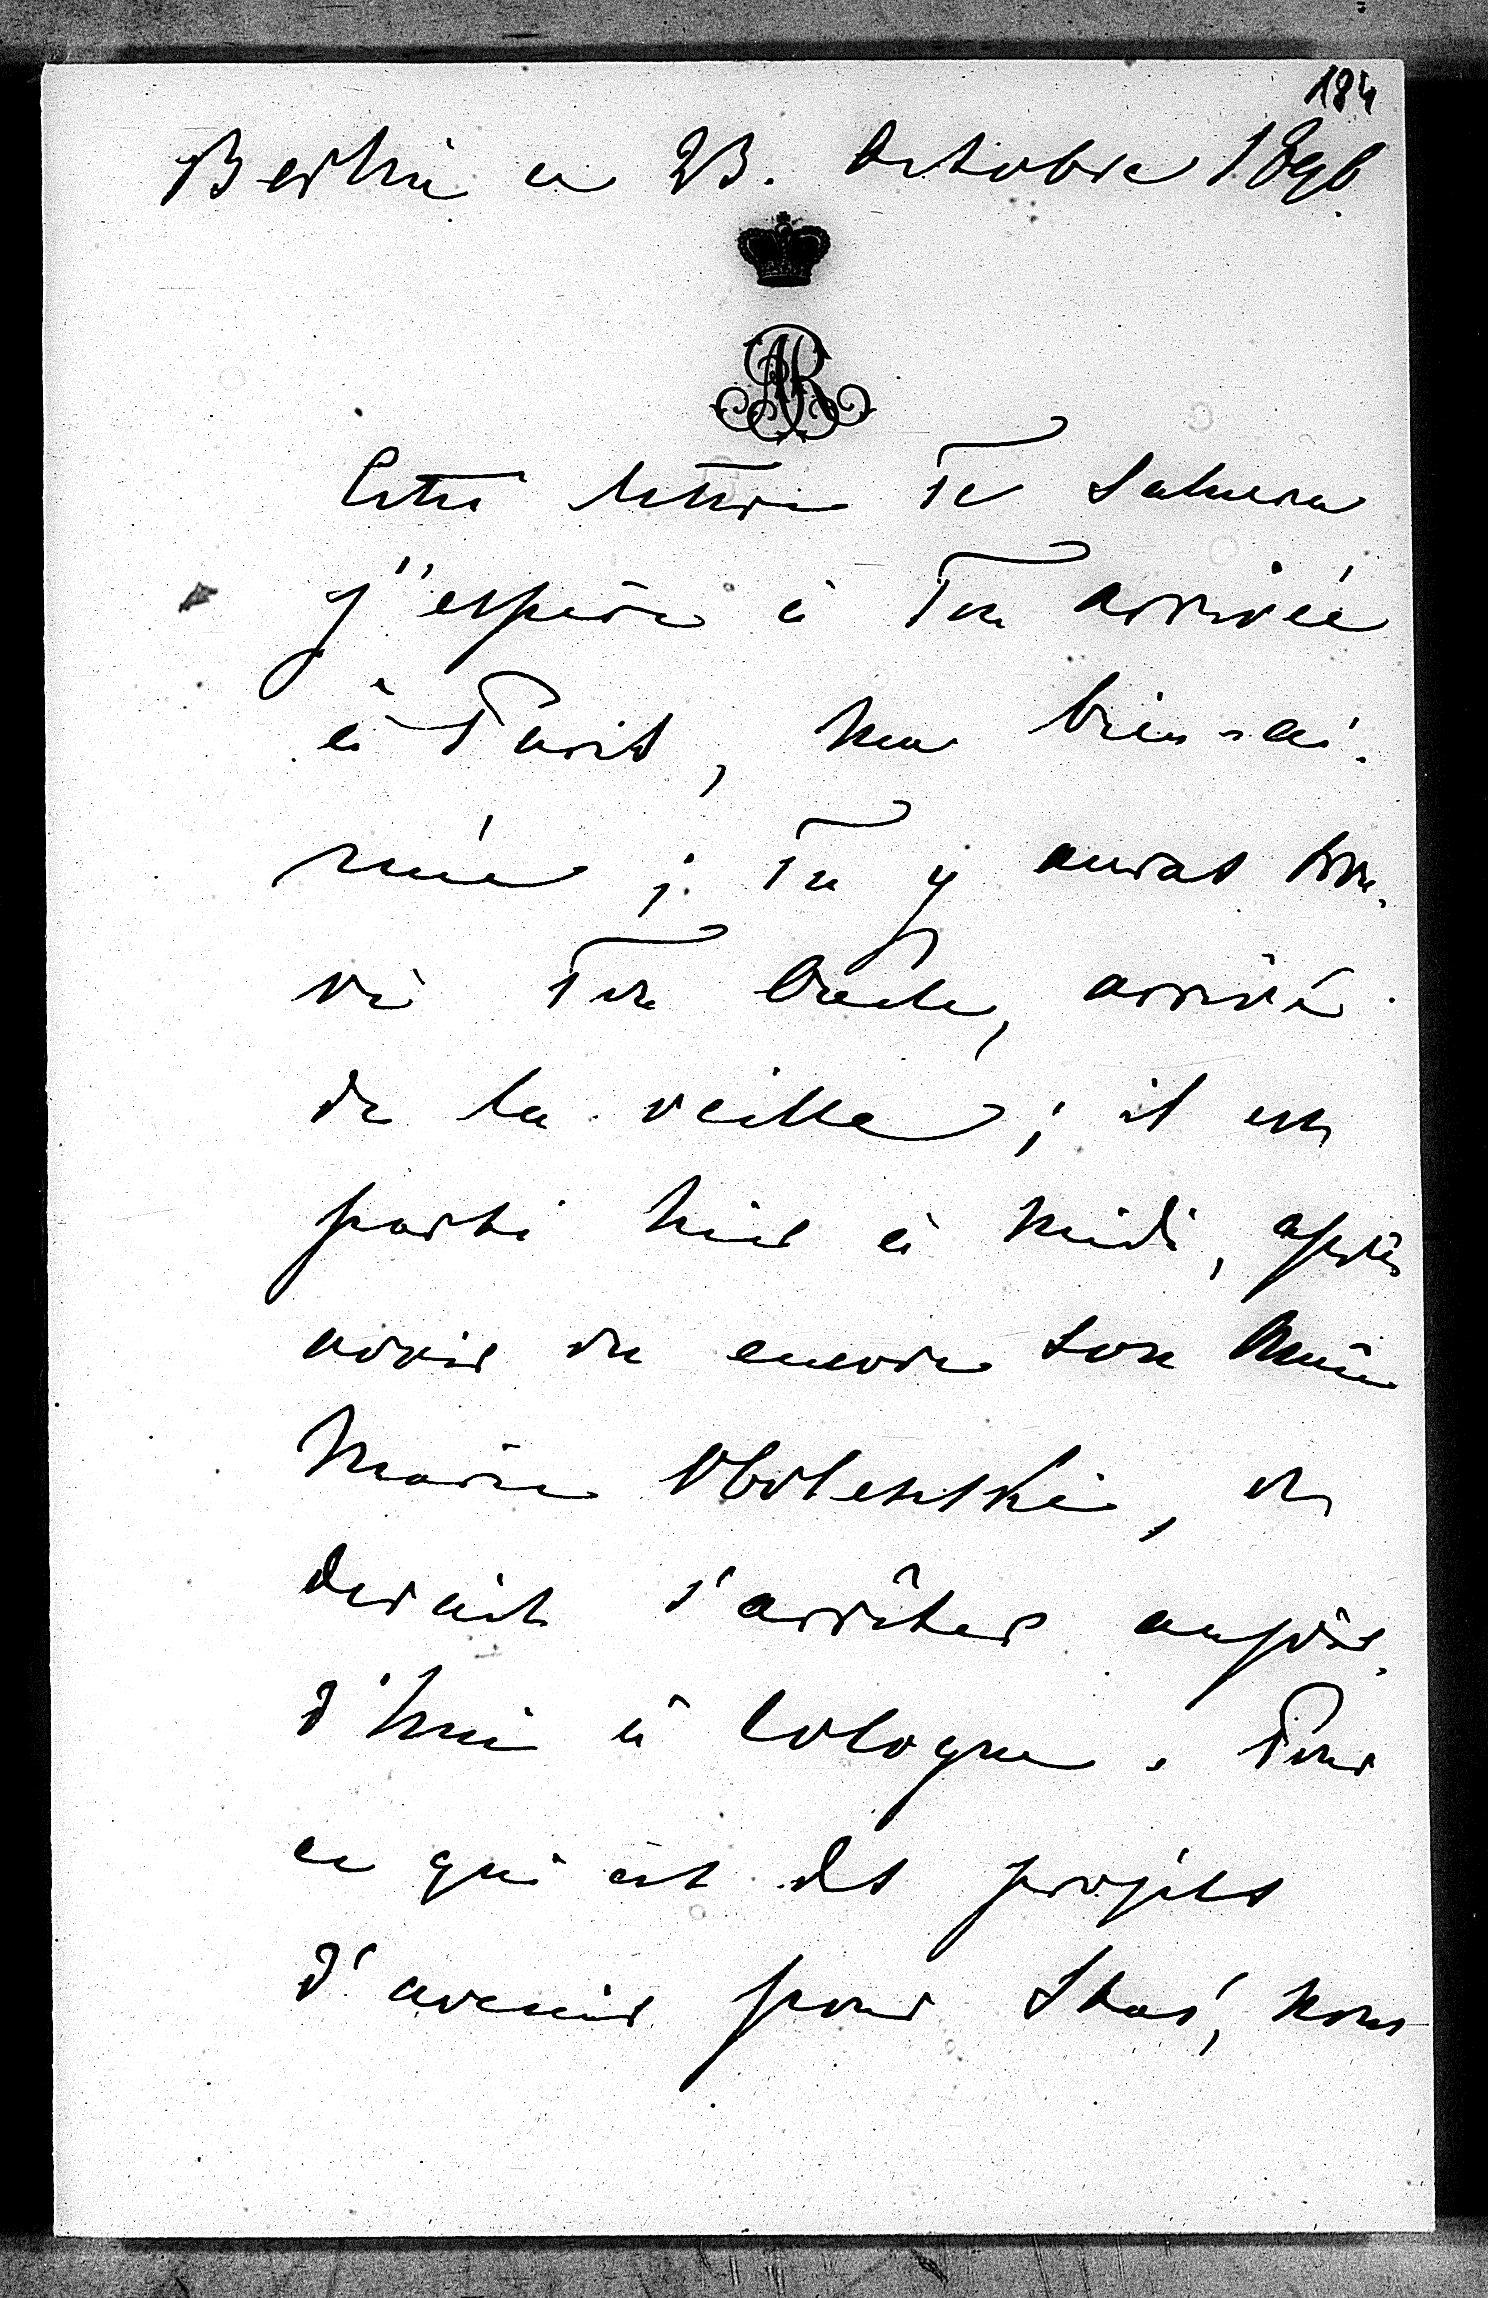 184
Berlin ce 23. Octobre 1896.
AR
Cette lettre Te saluera
j'espère à Ton arrivée
à Paris, ma bien-ai-
mée; Tu y auras trou-
vé Ton Oncle, arrivé
de la veille; il est
parti hier à midi, après
avoir vu encore son Amie
Marie Obolenski, et
devait s'arrêter aujour-
d'hui à Cologne. Pour
ce qui est des projets
d'avenir pour Stas', nous